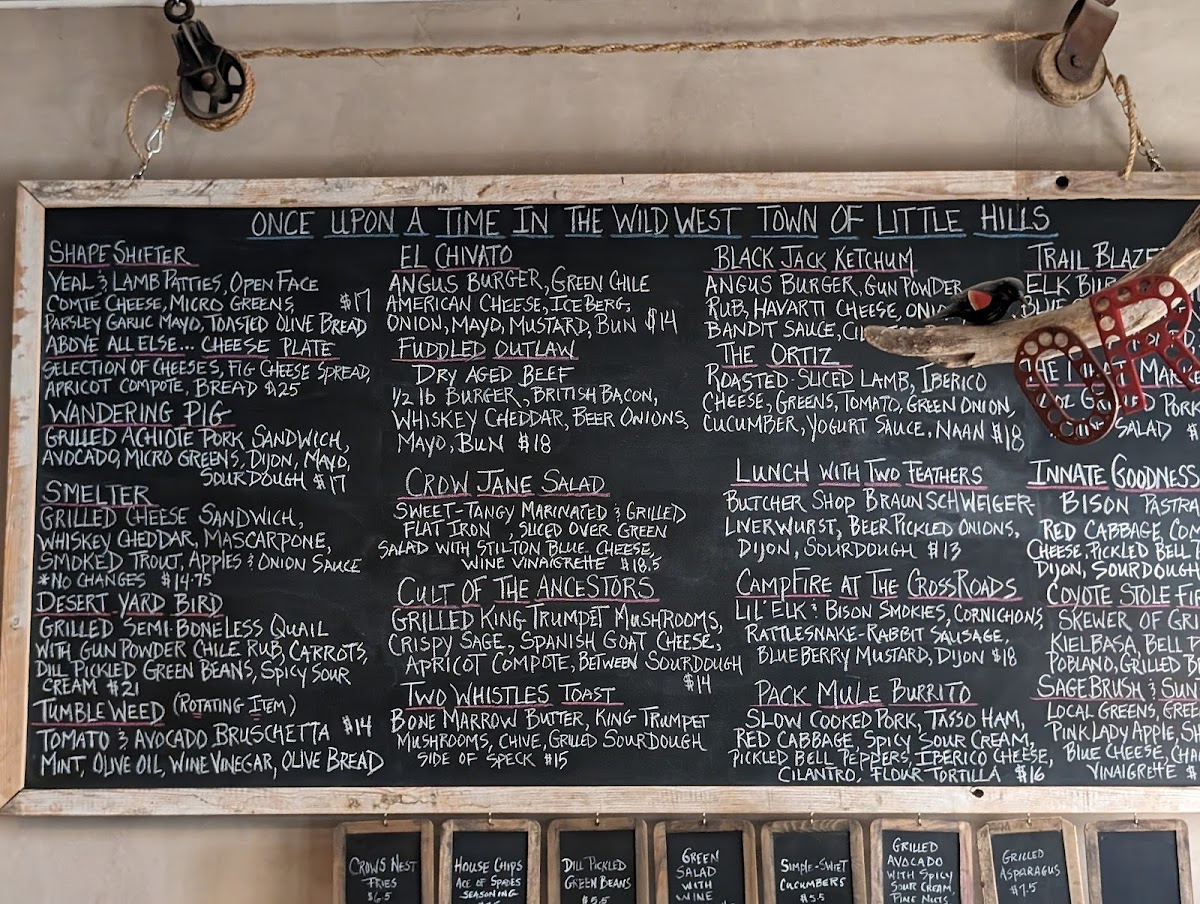 ONCE UPON A TIME IN THE WILD WEST TOWN OF LITTLE HILLS
SHAPE SHIFTER
VEAL & LAMB PATTIES, OPEN FACE
COMTE CHEESE, MICRO GREENS, $17
PARSLEY GARLIC MAYO, TOASTED OLIVE BREAD
ABOVE ALL ELSE... CHEESE PLATE
SELECTION OF CHEESES, FIG CHEESE SPREAD,
APRICOT COMPOTE, BREAD $25
WANDERING PIG
GRILLED ACHIOTE PORK SANDWICH,
AVOCADO, MICRO GREENS, DIJON, MAYO,
SOURDOUGH $17
SMELTER
GRILLED CHEESE SANDWICH,
WHISKEY CHEDDAR, MASCARPONE,
SMOKED TROUT, APPLES & ONION SAUCE
*NO CHANGES $14.75
DESERT YARD BIRD
GRILLED SEMI-BONELESS QUAIL
WITH GUN POWDER CHILE RUB, CARROTS,
DILL PICKLED GREEN BEANS, SPICY SOUR
CREAM $21
TUMBLEWEED (ROTATING ITEM)
TOMATO & AVOCADO BRUSCHETTA $14
MINT, OLIVE OIL, WINE VINEGAR, OLIVE BREAD
EL CHIVATO
ANGUS BURGER, GREEN CHILE
AMERICAN CHEESE, ICEBERG,
ONION, MAYO, MUSTARD, BUN $14
FUDDLED OUTLAW
DRY AGED BEEF
1/2 lb BURGER, BRITISH BACON,
WHISKEY CHEDDAR, BEER ONIONS,
MAYO, BUN $18
CROW JANE SALAD
SWEET-TANGY MARINATED & GRILLED
FLAT IRON, SLICED OVER GREEN
SALAD WITH STILTON BLUE CHEESE,
WINE VINAIGRETTE $18.5
CULT OF THE ANCESTORS
GRILLED KING TRUMPET MUSHROOMS,
CRISPY SAGE, SPANISH GOAT CHEESE,
APRICOT COMPOTE, BETWEEN SOURDOUGH
$14
TWO WHISTLES TOAST
BONE MARROW BUTTER, KING TRUMPET
MUSHROOMS, CHIVE, GRILLED SOURDOUGH
SIDE OF SPECK $15
BLACK JACK KETCHUM
ANGUS BURGER, GUN POWDER
RUB, HAVARTI CHEESE,
BANDIT SAUCE,
THE ORTIZ
ROASTED-SLICED LAMB, IBERICO
CHEESE, GREENS, TOMATO, GREEN ONION,
CUCUMBER, YOGURT SAUCE, NAAN $18
LUNCH WITH TWO FEATHERS
BUTCHER SHOP BRAUNSCHWEIGER-
LIVERWURST, BEER PICKLED ONIONS,
DIJON, SOURDOUGH $13
CAMPFIRE AT THE CROSSROADS
LIL' ELK & BISON SMOKIES, CORNICHONS,
RATTLESNAKE-RABBIT SAUSAGE,
BLUEBERRY MUSTARD, DIJON $18
PACK MULE BURRITO
SLOW COOKED PORK, TASSO HAM,
RED CABBAGE, SPICY SOUR CREAM,
PICKLED BELL PEPPERS, IBERICO CHEESE,
CILANTRO, FLOUR TORTILLA $16
TRAIL BLAZE
ELK
THE
PORK
SALAD $
INNATE GOODNESS
BISON PASTRA
RED CABBAGE, CO
CHEESE, PICKLED BELL
DIJON, SOURDOUGH
COYOTE STOLE FI
SKEWER OF GRI
KIELBASA, BELL
POBLANO, GRILLED
SAGEBRUSH & SUN
LOCAL GREENS, GREE
PINK LADY APPLE, SH
BLUE CHEESE, CHA
VINAIGRETTE $
CROWS NEST
FRIES
$6.5
HOUSE CHIPS
ACE OF SPADES
SEASONING
DILL PICKLED
GREEN BEANS
$5.5
GREEN
SALAD
WITH
WINE
SIMPLE-SWEET
CUCUMBERS
$5.5
GRILLED
AVOCADO
WITH SPICY
SOUR CREAM,
PINE NUTS
GRILLED
ASPARAGUS
$7.5